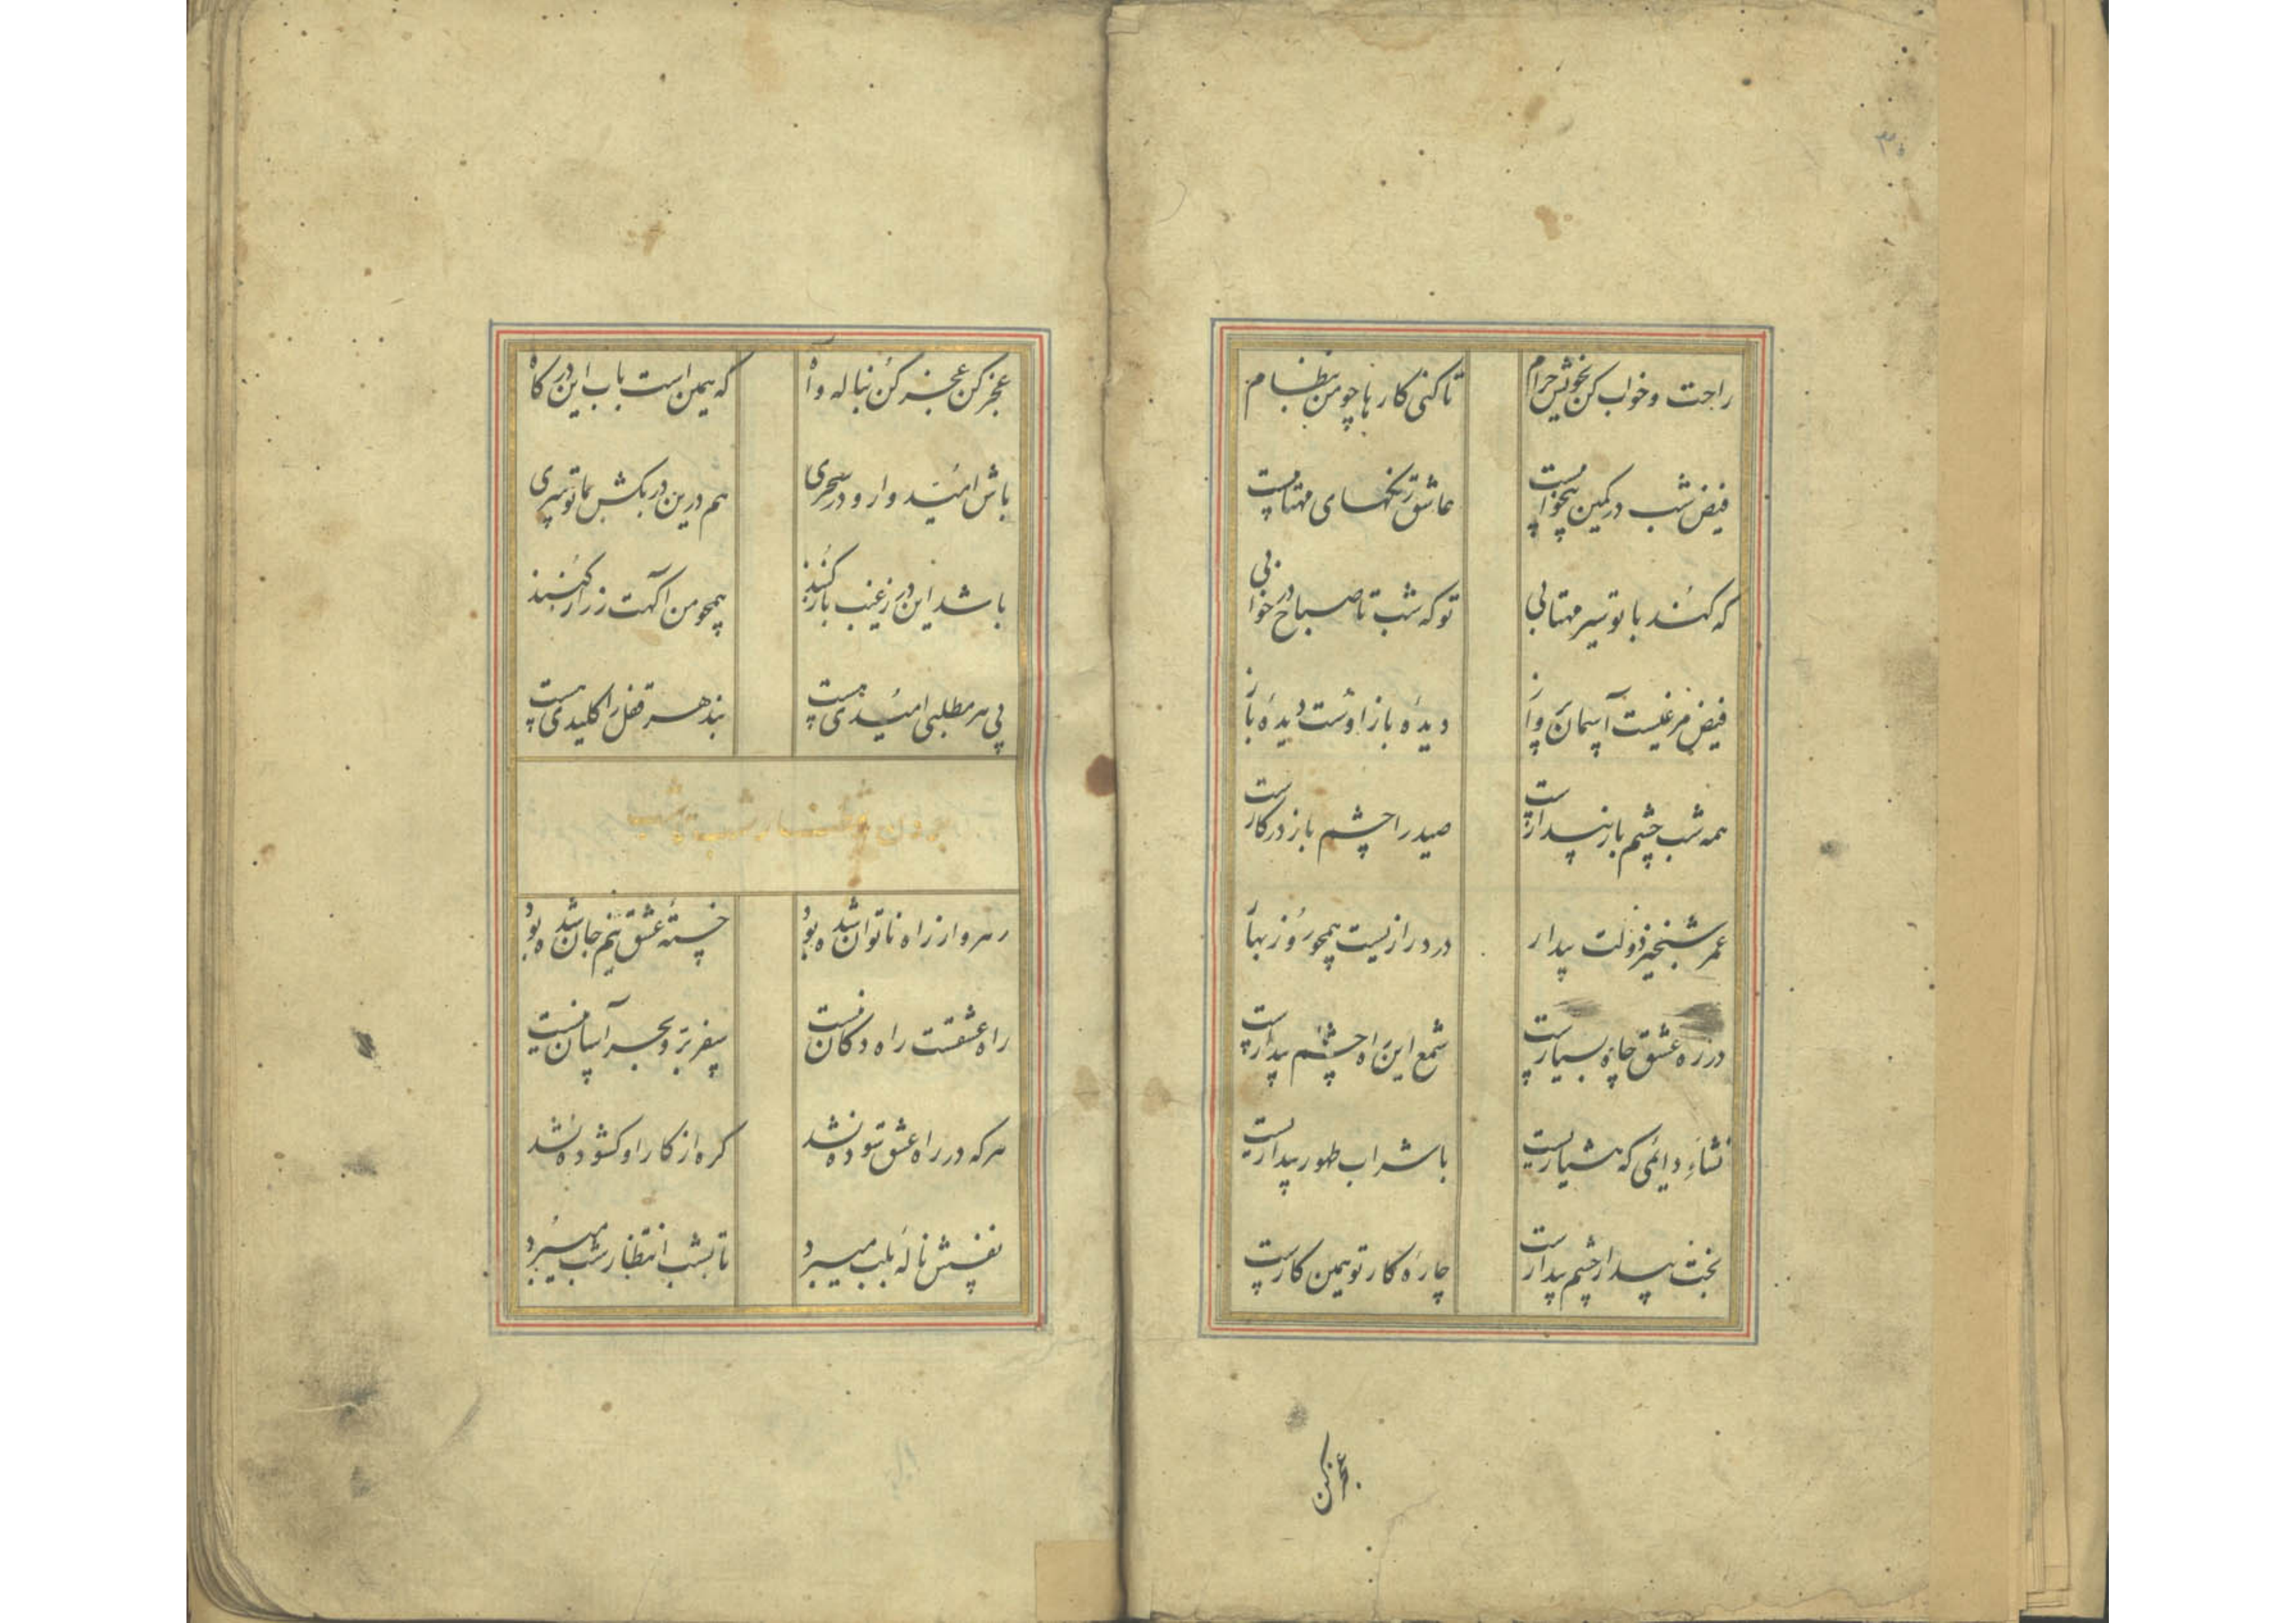 راحت و خواب کن بخویش حرام تا کنی کارها چو من بنظام
فیض شب در کمین بیخوابیست عاشق رنگهای مهتابیست
که کند با تو سیر مهتابی تو که شب تا صباح در خوابی
فیض مرغیست آسمان پرواز دیده باز اوست دیده باز
همه شب چشم باز پندارست صید را چشم باز در کارست
عمر شبخیز دولت بیدار در درازیست همچو روز بهار
در ره عشق چاه بسیارست شمع این راه چشم بیدارست
نشاء دایمی که هشیاریست با شراب طهور بیداریست
بخت بیدار چشم بیدارست چاره کار تو همین کارست
عجز کن
عجز کن عجز کن بناله و آه که همین است باب این درگاه
باش امیدوار و در سحری هم درین در بکش بما تو سری
باشد این در ز غیب باز کنند همچو من آگهت ز راز کنند
پی هر مطلبی امیدی هست بند هر قفل را کلیدی هست
رهرو از راه ناتوان شده بود خسته عشق نیم جان شده بود
راه عشقست راه دکان نیست سفر بر و بحر آسان نیست
هر که در راه عشق سوده نشد کره از کار او کشوده نشد
نفسش ناله بلب میبرد تا بشب انتظار شب میبرد